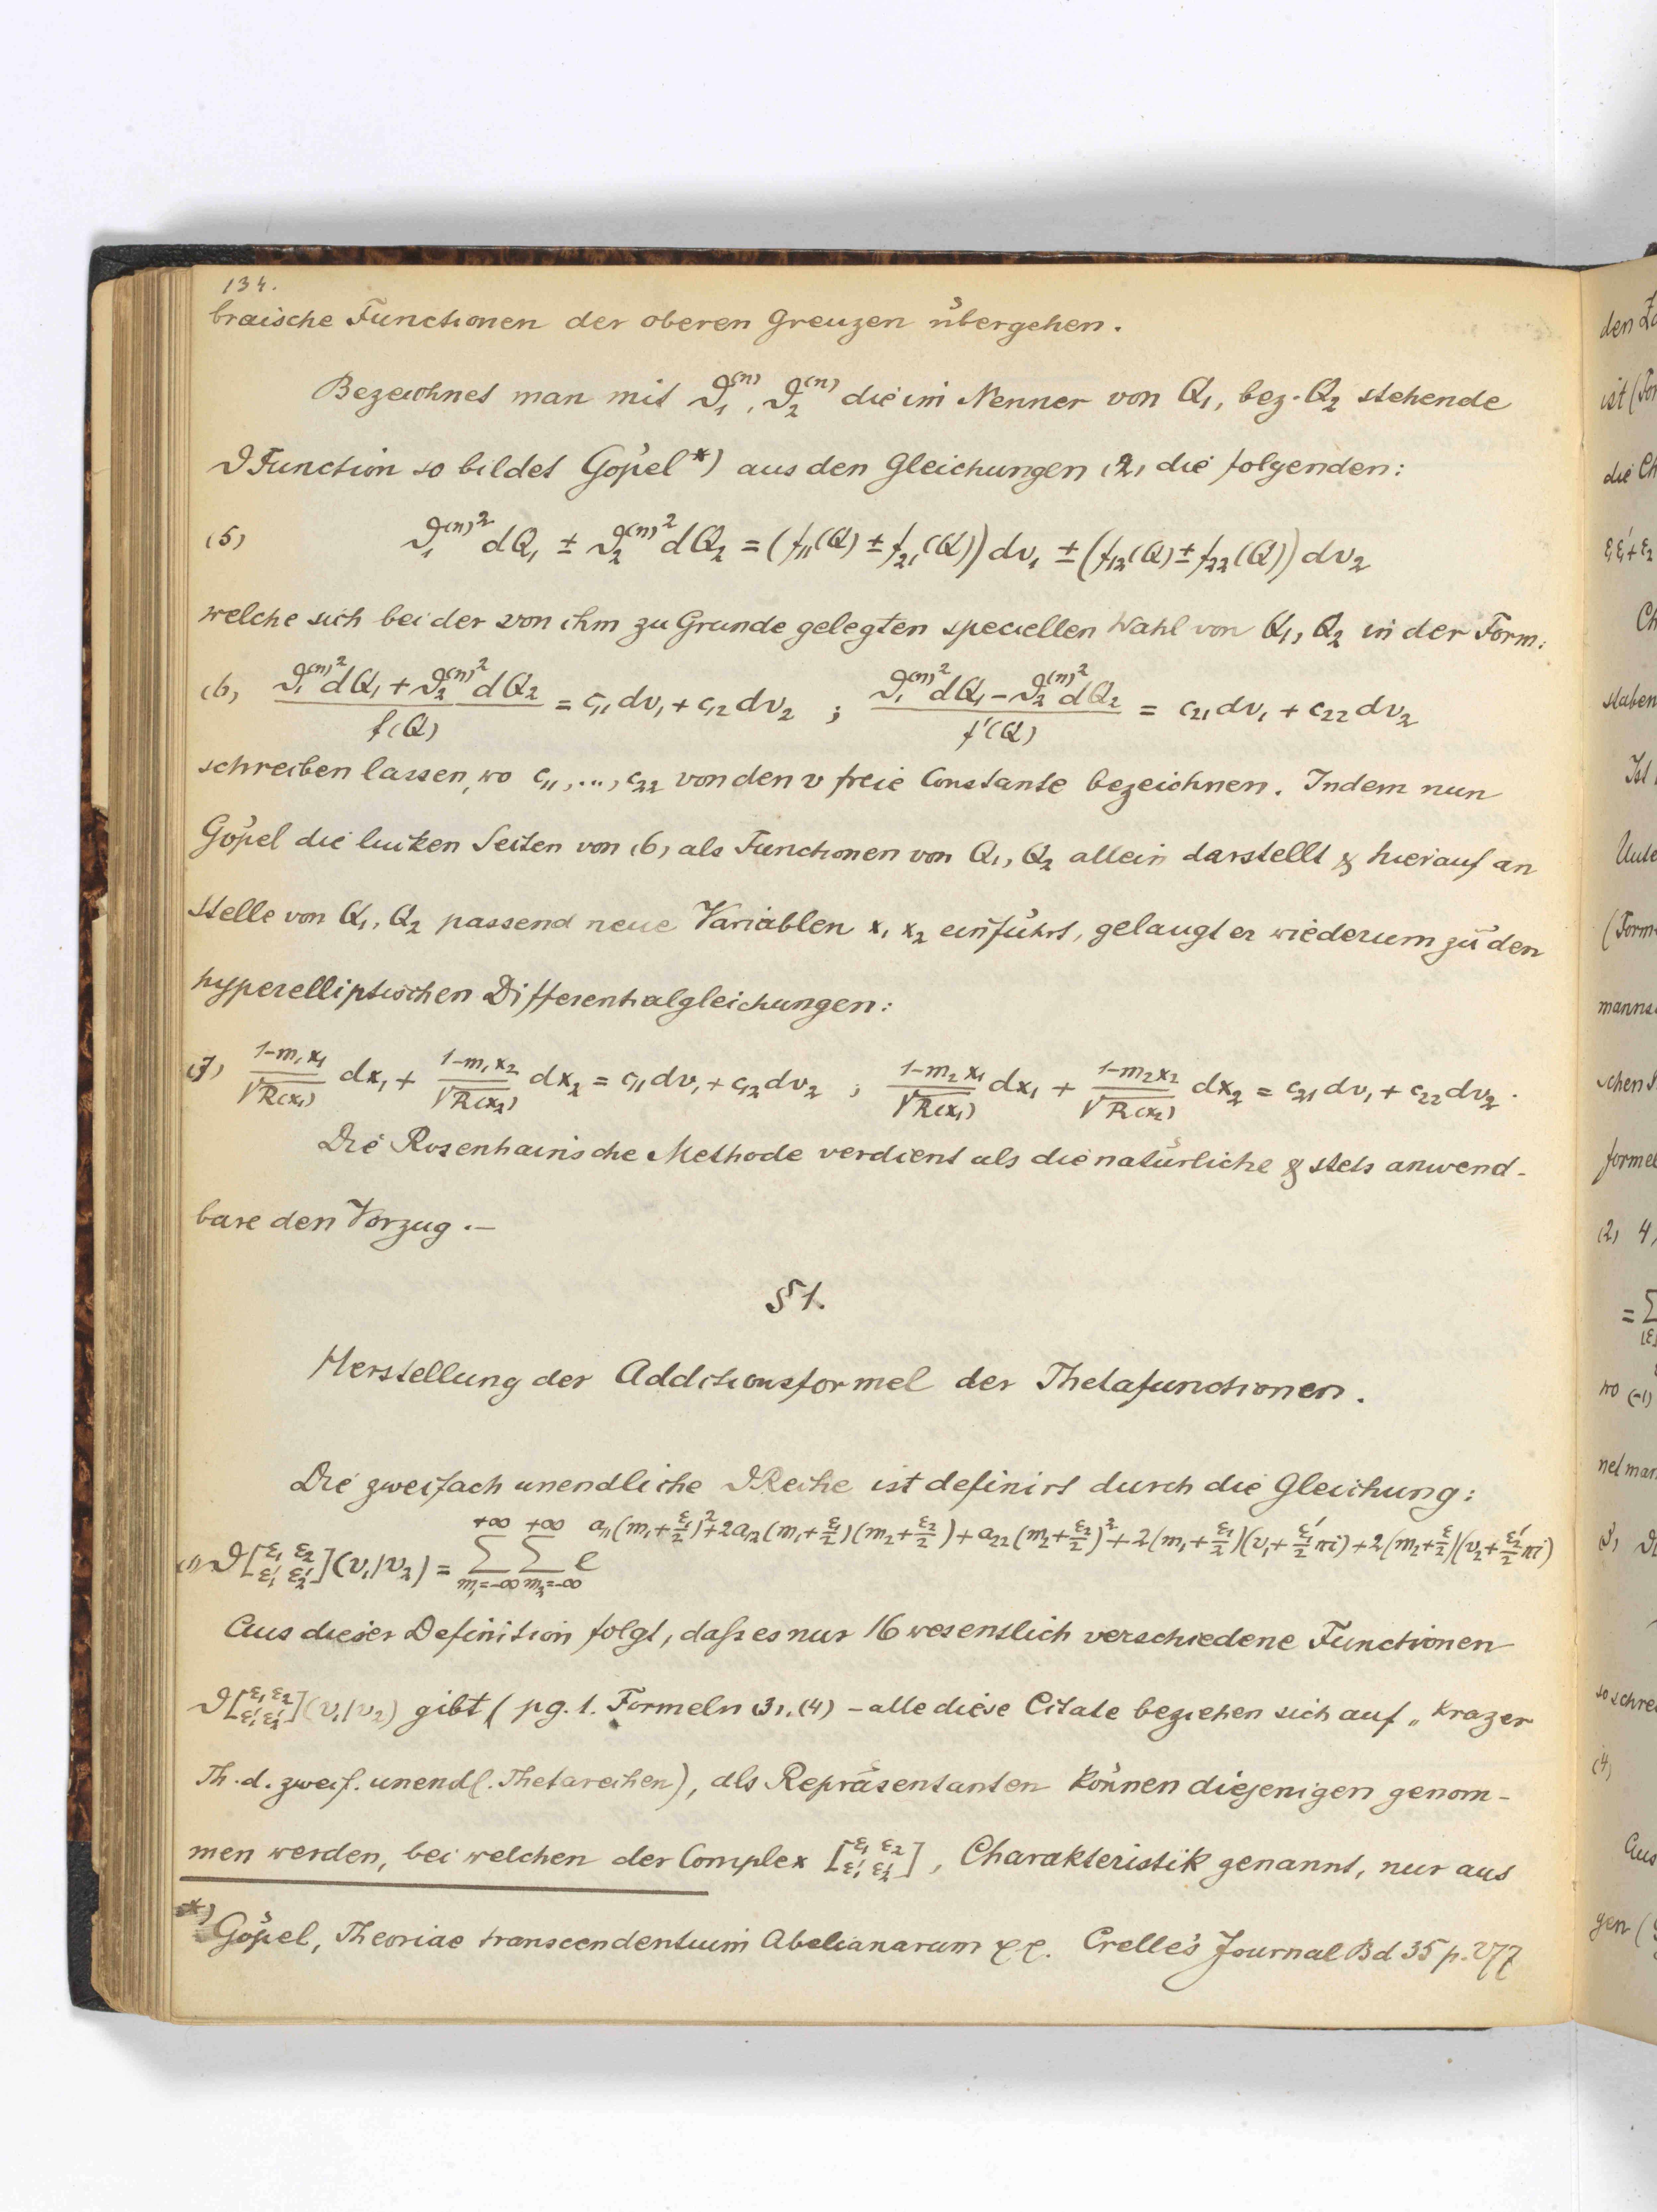 134.
braische Functionen der oberen Grenzen übergehen.
Bezeichnet man mit ϑ₁⁽ⁿ⁾, ϑ₂⁽ⁿ⁾ die im Nenner von Q₁, bez. Q₂ stehende
ϑFunction so bildet Göpel *) aus den Gleichungen (2) die folgenden:
(5) ϑ₁⁽ⁿ⁾² dQ₁ ± ϑ₂⁽ⁿ⁾² dQ₂ = (f₁₁(Q) ± f₂₁(Q)) dv₁ ± (f₁₂(Q) ± f₂₂(Q)) dv₂
welche sich bei der von ihm zu Grunde gelegten speciellen Wahl von Q₁, Q₂ in der Form:
(6) (ϑ₁⁽ⁿ⁾² dQ₁ + ϑ₂⁽ⁿ⁾² dQ₂)/f(Q) = c₁₁ dv₁ + c₁₂ dv₂ ; (ϑ₁⁽ⁿ⁾² dQ₁ − ϑ₂⁽ⁿ⁾² dQ₂)/f'(Q) = c₂₁ dv₁ + c₂₂ dv₂
schreiben lassen, wo c₁₁, ..., c₂₂ von den v freie Constante bezeichnen. Indem nun
Göpel die linken Seiten von (6) als Functionen von Q₁, Q₂ allein darstellt & hierauf an
Stelle von Q₁, Q₂ passend neue Variablen x₁ x₂ einführt, gelangt er wiederum zu den
hyperelliptischen Differentialgleichungen:
(7) (1−m₁x₁)/√R(x₁) dx₁ + (1−m₁x₂)/√R(x₂) dx₂ = c₁₁ dv₁ + c₁₂ dv₂ ; (1−m₂x₁)/√R(x₁) dx₁ + (1−m₂x₂)/√R(x₂) dx₂ = c₂₁ dv₁ + c₂₂ dv₂.
Die Rosenhainische Methode verdient als die natürliche & stets anwend-
bare den Vorzug.—
§ 1.
Herstellung der Additionsformel der Thetafunctionen.
Die zweifach unendliche ϑReihe ist definirt durch die Gleichung:
(1) ϑ[ε₁ ε₂ / ε₁' ε₂'](v₁|v₂) = Σ_{m₁=−∞}^{+∞} Σ_{m₂=−∞}^{+∞} e^{a₁₁(m₁+ε₁/2)²+2a₁₂(m₁+ε₁/2)(m₂+ε₂/2)+a₂₂(m₂+ε₂/2)²+2(m₁+ε₁/2)(v₁+ε₁'/2 πi)+2(m₂+ε/2)(v₂+ε₂'/2 πi)}
Aus dieser Definition folgt, daſs es nur 16 wesentlich verschiedene Functionen
ϑ[ε₁ ε₂ / ε₁' ε₂'](v₁|v₂) gibt (pg. 1. Formeln (3), (4) – alle diese Citate beziehen sich auf „Krazer
Th. d. zweif. unendl. Thetareihen), als Repräsentanten können diejenigen genom-
men werden, bei welchen der Complex [ε₁ ε₂ / ε₁' ε₂'], Charakteristik genannt, nur aus
*) Göpel, Theoriae transcendentuim Abelianarum Crelle's Journal Bd 35 p. 277
den
ist (For
die Ch
ε₁ε₁'+ε₂
Ch
staben
Ist
(Form
manns
schen
formel
(2) 4
= Σ
wo (-1)
net man
(3) ϑ
so schre
(4)
Aus
gen (